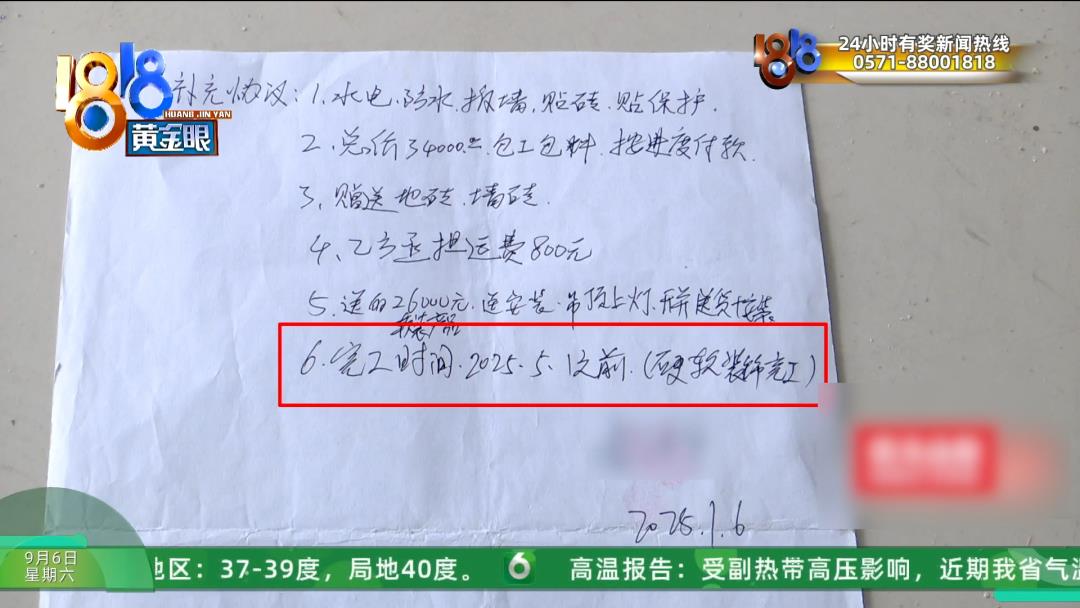 24小时有奖新闻热线
1818
0571-88001818
1818
HUANG JIN YAN
黄金眼
补充协议：1、水电、防水、拆墙、贴砖、贴保护.
2、总价34000.00.包工包料.按进度付款.
3、赠送地砖、墙砖.
4、乙方承担运费800元
5、送的26000元.送安装.吊顶上灯.
软装产品
6、完工时间.2025.5.1之前.(硬软装饰完工)
2025.1.6
9月6日
星期六
地区：37-39度，局地40度。
6
高温报告：受副热带高压影响，近期我省气温